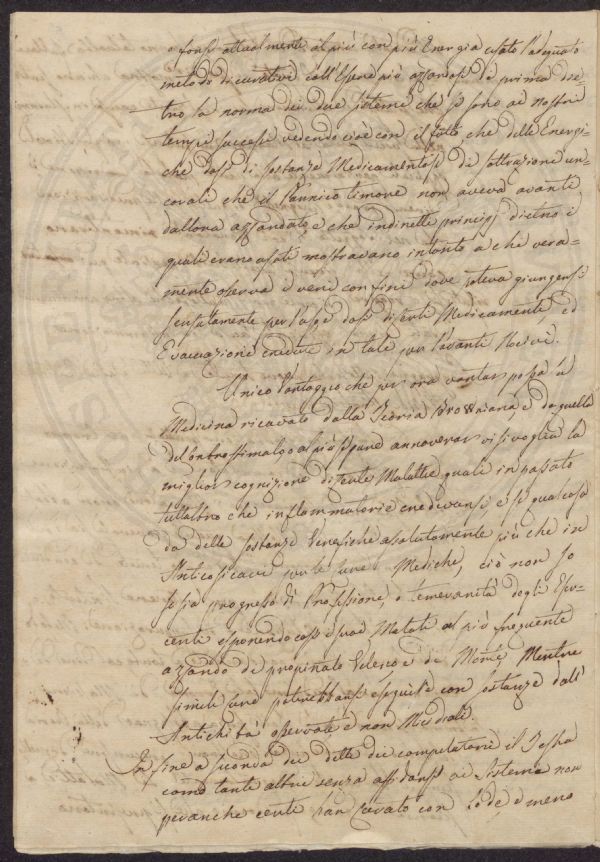 o fonsi attualmente al più con più Energia usato l'adequato
metodo di curative coll'Essere più
tro la norma dei due sistemi che si sono ai nostri
tempi successi vedendo cioè con il fatto, che delle Energi-
che dosi di sostanze Medicamentose di sottrazione un-
corali che il Pannico timore non aveva avanti
dallora azzardato, e che indirette principj dietro i
quali erano usati mostravano intanto a che vera-
mente osserva i veri confini dove poteva giungersi
sensatamente per l'uso dosi diserti Medicamenti, ed
Evacuazioni credute in tale per l'avanti Nocive.
Unico Vantaggio che per ora vantar possa la
Medicina ricavato dalla Teoria Browniana e da quella
del Controstimolo o al più si pare annoverar vi si voglia la
miglior cognizione di serte Malattie quali in passato
tutt'altro che inflammatorie credevansi, e se qualcosa
da delle sostanze Venefiche assolutamente più che in
Antico si cavi per le cure Mediche, ciò non so
se sia progresso di Professione, o temerarità degli Eser-
centi esponendo così i suoi Malati al più frequente
azzardo di propinato Veleno e di Morte Mentre
simili cure potrebbansi eseguire con sostanze dall'
Antichità osservate e non Micidiali.
In fine a scorza dei delle die il Testa
come tanti altri senza affidarsi ai Sistemi non
per anche certi han curato con lode, e meno